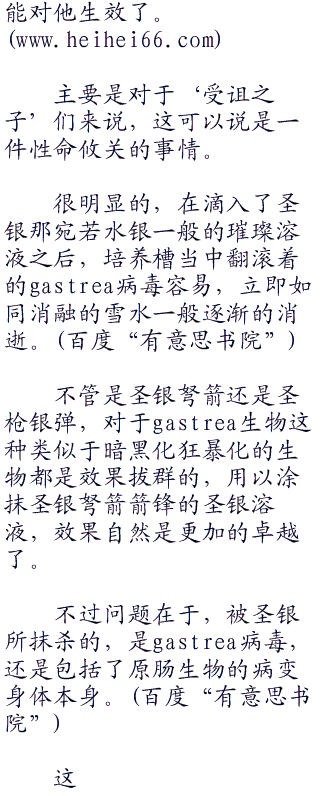 能对他生效了。
(www.heihei66.com)
主要是对于‘受诅之
子’们来说，这可以说是一
件性命攸关的事情。
很明显的，在滴入了圣
银那宛若水银一般的璀璨溶
液之后，培养槽当中翻滚着
的gastrea病毒容易，立即如
同消融的雪水一般逐渐的消
逝。(百度“有意思书院”)
不管是圣银弩箭还是圣
枪银弹，对于gastrea生物这
种类似于暗黑化狂暴化的生
物都是效果拔群的，用以涂
抹圣银弩箭箭锋的圣银溶
液，效果自然是更加的卓越
了。
不过问题在于，被圣银
所抹杀的，是gastrea病毒，
还是包括了原肠生物的病变
身体本身。(百度“有意思书
院”)
这